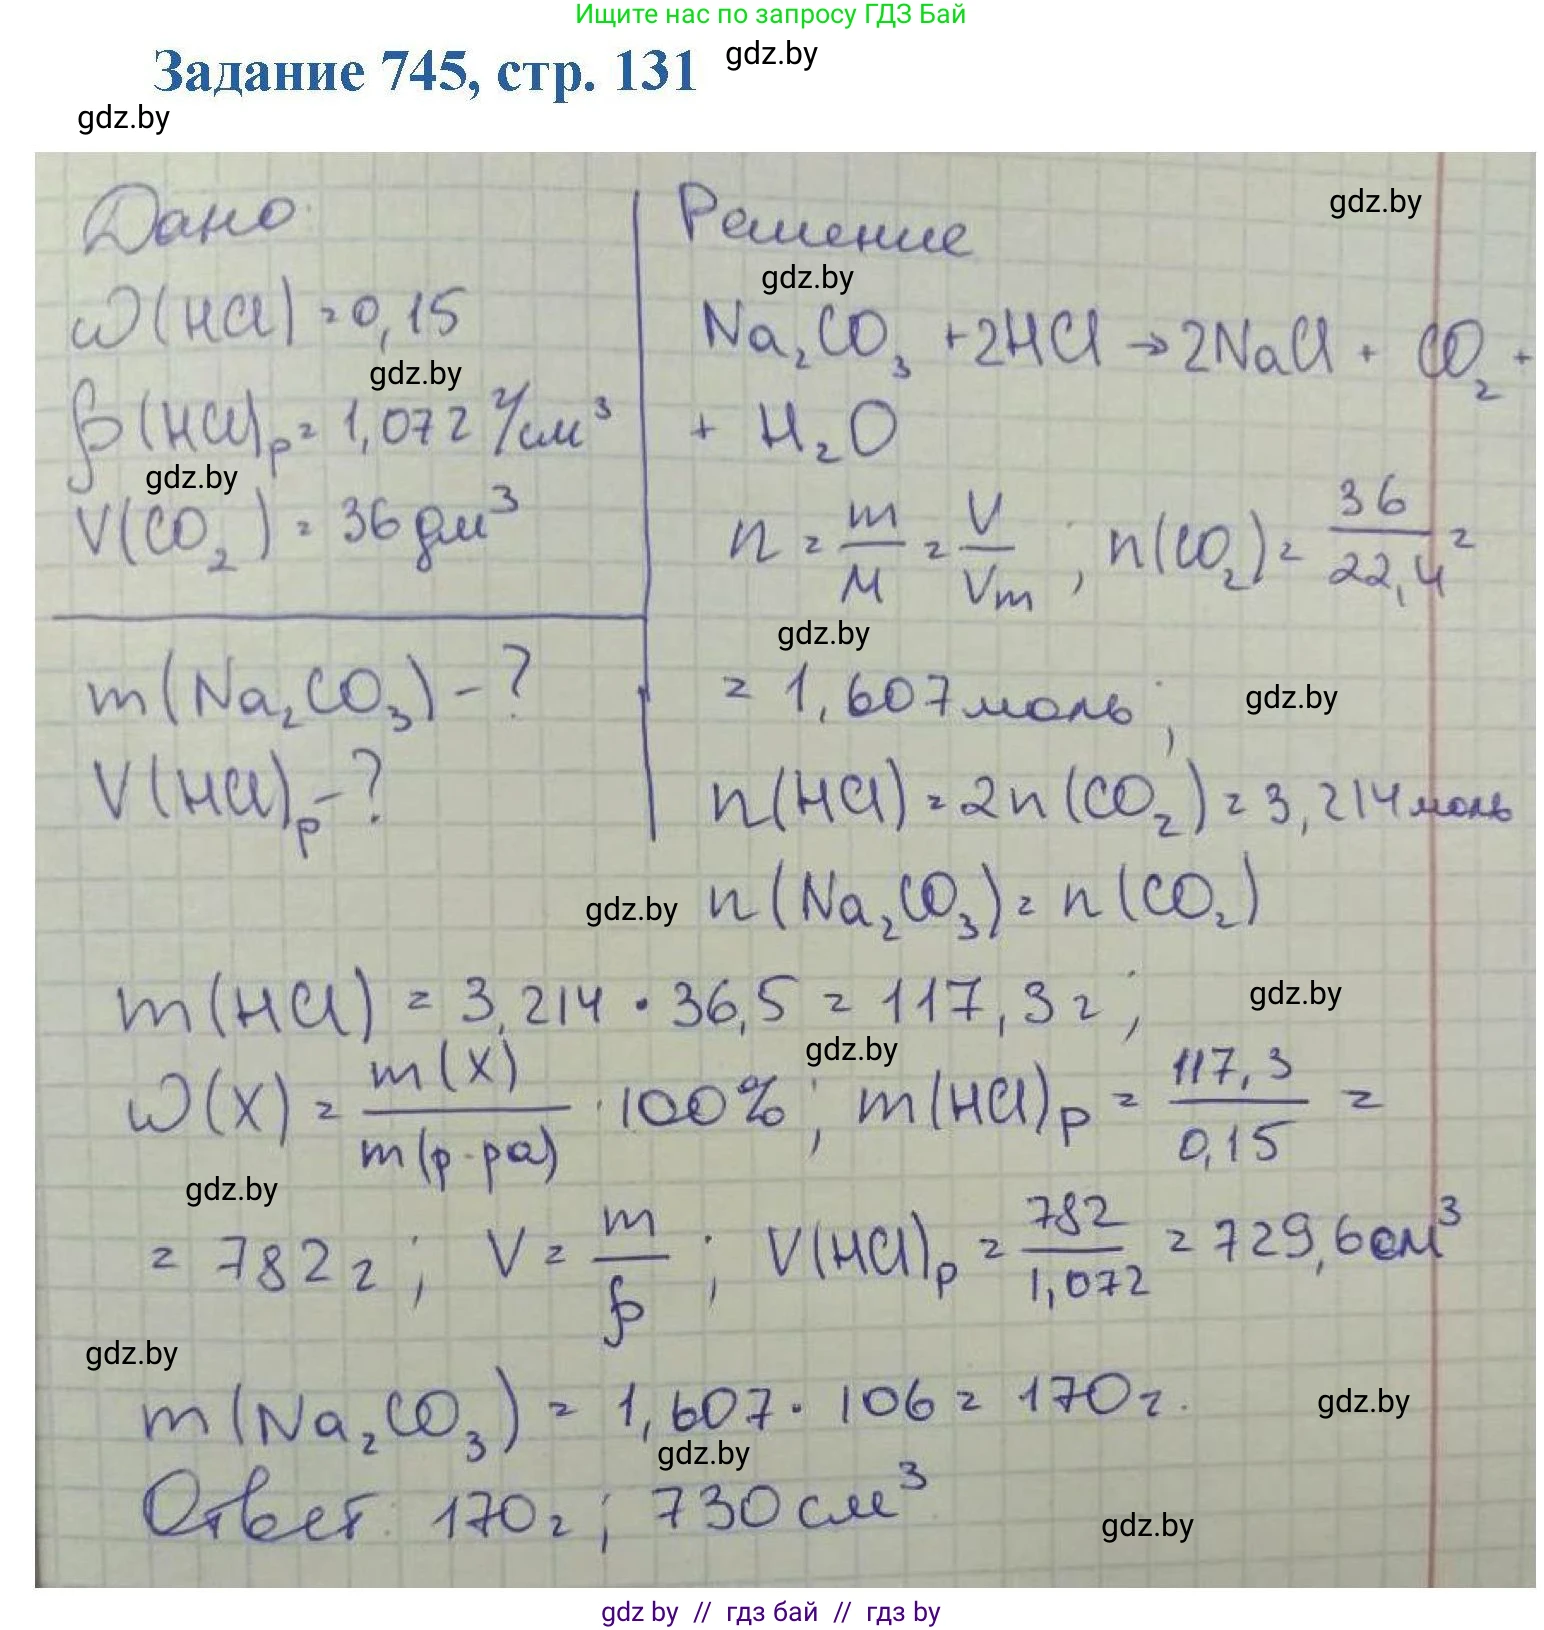 Ищите нас по запросу ГДЗ Бай
Задание 745, стр. 131
gdz.by
gdz.by
Дано:
ω(HCl) = 0,15
ρ(HCl)р = 1,072 г/см³
V(CO₂) = 36 дм³
m(Na₂CO₃) - ?
V(HCl)р - ?
Решение
Na₂CO₃ + 2HCl → 2NaCl + CO₂ +
+ H₂O
n = m/M = V/Vm ; n(CO₂) = 36/22,4 =
= 1,607 моль ;
n(HCl) = 2n(CO₂) = 3,214 моль
n(Na₂CO₃) = n(CO₂)
m(HCl) = 3,214 · 36,5 = 117,3 г ;
ω(X) = m(X)/m(р-ра) · 100% ; m(HCl)р = 117,3/0,15 =
= 782 г ; V = m/ρ ; V(HCl)р = 782/1,072 = 729,6 см³
m(Na₂CO₃) = 1,607 · 106 = 170 г.
Ответ: 170 г ; 730 см³
gdz.by
gdz.by
gdz.by
gdz.by
gdz.by
gdz.by
gdz.by
gdz.by
gdz.by
gdz.by
gdz.by
gdz.by
gdz.by
gdz.by
gdz by // гдз бай // гдз by